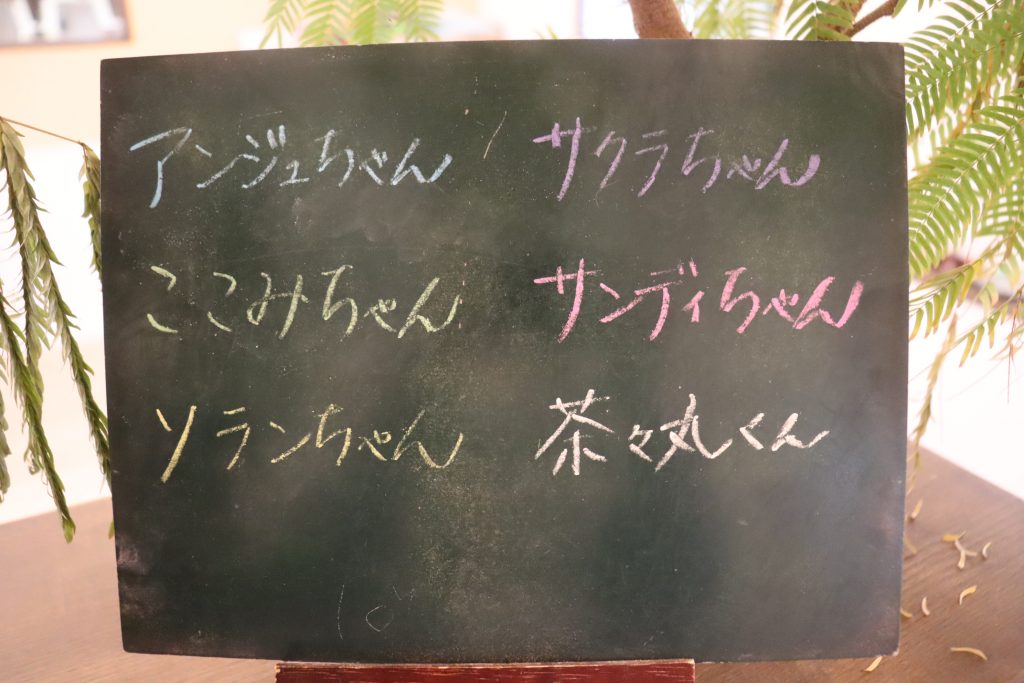 アンジュちゃん
サクラちゃん
ここみちゃん
サンディちゃん
ソランちゃん
茶々丸くん